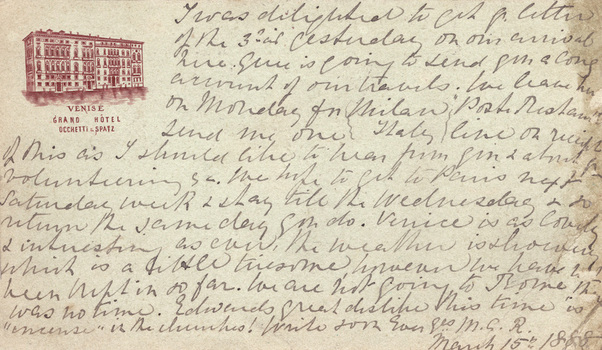 VENISE
GRAND HÔTEL
OCCHETTI & SPATZ
I was delighted to get yr letter
of the 3rd yesterday on our arrival
here. is going to send you a long
account of our travels. We leave here
on Monday for Milan, Poste Restante
send me one Italy line on receipt
of this as I should like to hear from you & about yr
volunteering &c. We hope to get to Paris next
Saturday week & stay till the Wednesday & so
return the same day you do. Venice is as lovely
& interesting as ever, the weather is showery
which is a little tiresome however we have not
been kept in so far. We are not going to Rome there
was no time. Edwards great dislike this time is
"incense" in the churches! Write soon Ever yrs M.G.R.
March 15th 1888